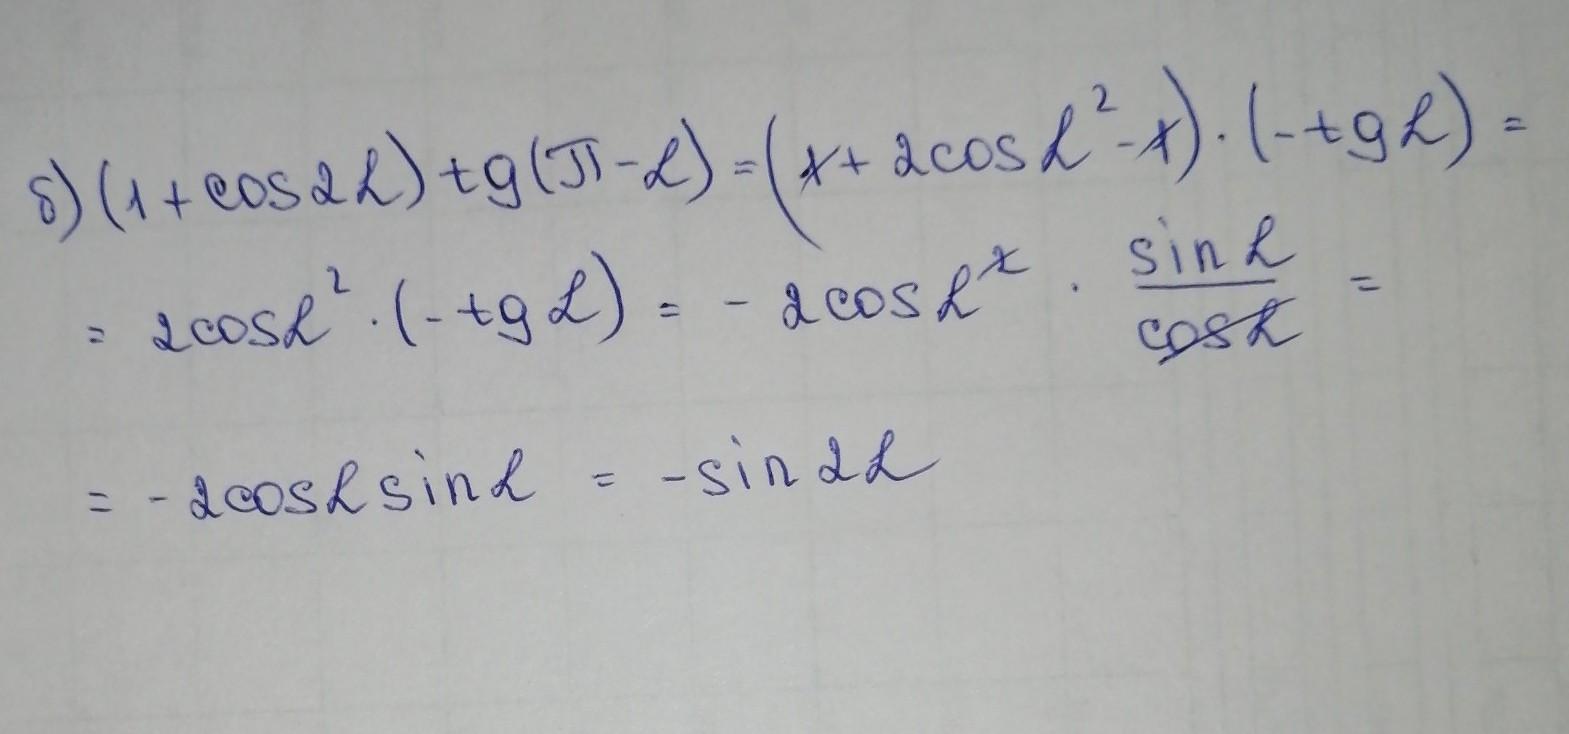 б) (1 + cos2α) tg(π - α) = (1 + 2cosα² - 1) · (-tgα) =
= 2cosα² · (-tgα) = - 2cosα² · sinα/cosα =
= - 2cosα sinα = - sin2α